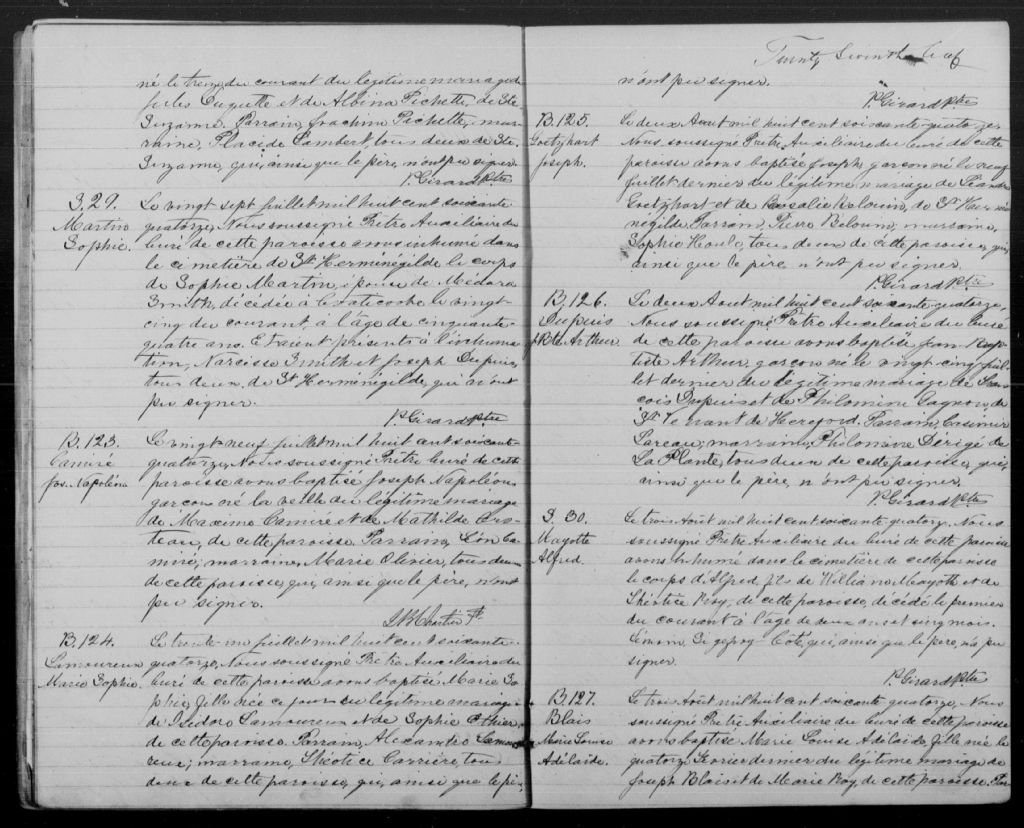 né le treize du courant du légitime mariage de
Jules Duquette et de Albina Pichette, de Ste
Suzanne. Parrain, Joachim Pichette, mar-
raine, Placede Lambert, tous deux de Ste
Suzanne, qui, ainsi que le père, n'ont pu signer.
P. Girard Ptre
S. 29.
Martin
Sophie.
Le vingt sept juillet mil huit cent soixante
quatorze, Nous soussigné Prêtre Auxiliaire du
Curé de cette paroisse avons inhumé dans
le cimetière de St Herménégilde le corps
de Sophie Martin, épouse de Médore
Smith, décédée à le vingt-
cinq du courant, à l'âge de cinquante-
quatre ans. Etaient présents à l'inhuma-
tion, Narcisse Smith et Joseph Dupuis,
tous deux de St Herménégilde, qui n'ont
pu signer.
P. Girard Ptre
B. 123.
Camiré
Jos. Napoléon
Le vingt-neuf juillet mil huit cent soixante
quatorze, Nous soussigné Prêtre Curé de cette
paroisse avons baptisé Joseph Napoléon
garçon né la veille du légitime mariage
de Maxime Camiré et de Mathilde Cro-
teau, de cette paroisse. Parrain, Léon Ca-
miré; marraine, Marie Olivier, tous deux
de cette paroisse, qui, ainsi que le père, n'ont
pu signer.
J B Chartier Pt.
B. 124.
Lamoureux
Marie Sophie.
Le trente-un juillet mil huit cent soixante-
quatorze, Nous soussigné Prêtre Auxiliaire du
Curé de cette paroisse avons baptisé Marie So-
phie, fille née ce jour du légitime mariage
de Isidore Lamoureux et de Sophie Ethier,
de cette paroisse. Parrain, Alexandre Lamou-
reux; marraine, Théotice Carrière, tous
deux de cette paroisse, qui, ainsi que le père,
Twenty Seventh Leaf
n'ont pu signer.
P. Girard Ptre
B. 125.
Goetzhart
Joseph.
Le deux Aout mil huit cent soixante-quatorze,
Nous soussigné Prêtre Auxiliaire du Curé de cette
paroisse avons baptisé Joseph, garçon né le neuf
juillet dernier du légitime mariage de Léandre
Goetzhart et de Rosalie Belouin, de St Hermé-
négilde. Parrain, Pierre Belouin, marraine,
Sophie Houle, tous deux de cette paroisse, qui,
ainsi que le père, n'ont pu signer.
P. Girard Ptre
B. 126.
Dupuis
J. Bte Arthur
Le deux Aout mil huit cent soixante-quatorze,
Nous soussigné Prêtre Auxiliaire du Curé
de cette paroisse avons baptisé Jean Bap-
tiste Arthur, garçon né le vingt-cinq juil-
let dernier du légitime mariage de Fran-
cois Dupuis et de Philomine Gagnon, de
St Venant de Hereford. Parrain, Casimir
Lareau; marraine, Philomine Dérigé de
La Plante, tous deux de cette paroisse, qui,
ainsi que le père, n'ont pu signer.
P. Girard Ptre
S 30.
Mayotte
Alfred.
Le trois Août mil huit cent soixante quatorze, Nous
soussigné Prêtre Auxiliaire du Curé de cette paroisse
avons inhumé dans le cimetière de cette paroisse
le corps d'Alfred, fils de William Mayotte et de
Théotice Roy, de cette paroisse, décédé le premier
du courant à l'âge de deux ans et cinq mois.
Témoin Sigefroy Coté, qui, ainsi que le père, n'a pu
signer.
P. Girard Ptre
B. 127.
Blais
Marie Louise
Adélaide.
Le trois Août mil huit cent soixante quatorze, Nous
soussigné Prêtre Auxiliaire du Curé de cette paroisse
avons baptisé Marie Louise Adélaide, fille née le
quatorze Fevrier dernier du légitime mariage de
Joseph Blais et de Marie Roy, de cette paroisse. Par